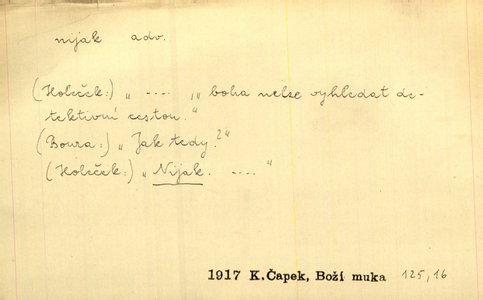 nijak adv.
(Holeček:) „ .... „ boha nelze vyhledat de-
tektivní cestou.“
(Boura:) „Jak tedy?“
(Holeček:) „Nijak. ....“
1917 K.Čapek, Boží muka 125,16